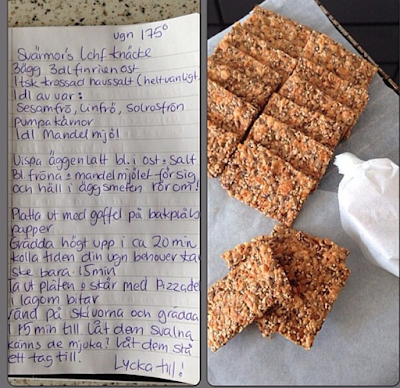 ugn 175°
Svärmor's lchf knäcke
3ägg 3dl finriven ost
1tsk krossad havssalt (helt vanligt
1dl av var:
Sesamfrö, linfrö, Solrosfrön
Pumpakärnor
1dl Mandelmjöl
Vispa äggen lätt bl. i ost & salt
Bl fröna & mandelmjölet för sig
och häll i äggsmeten rör om!
Platta ut med gaffel på bakplåts
papper
Grädda högt upp i ca 20 min
kolla tiden din ugn behöver ka
ske bara 15min
Ta ut plåten & skär med Pizzade
i lagom bitar
vänd på skivorna och grädda
i 15 min till Låt dem svalna
känns de mjuka? Låt dem stå
ett tag till.
Lycka till!